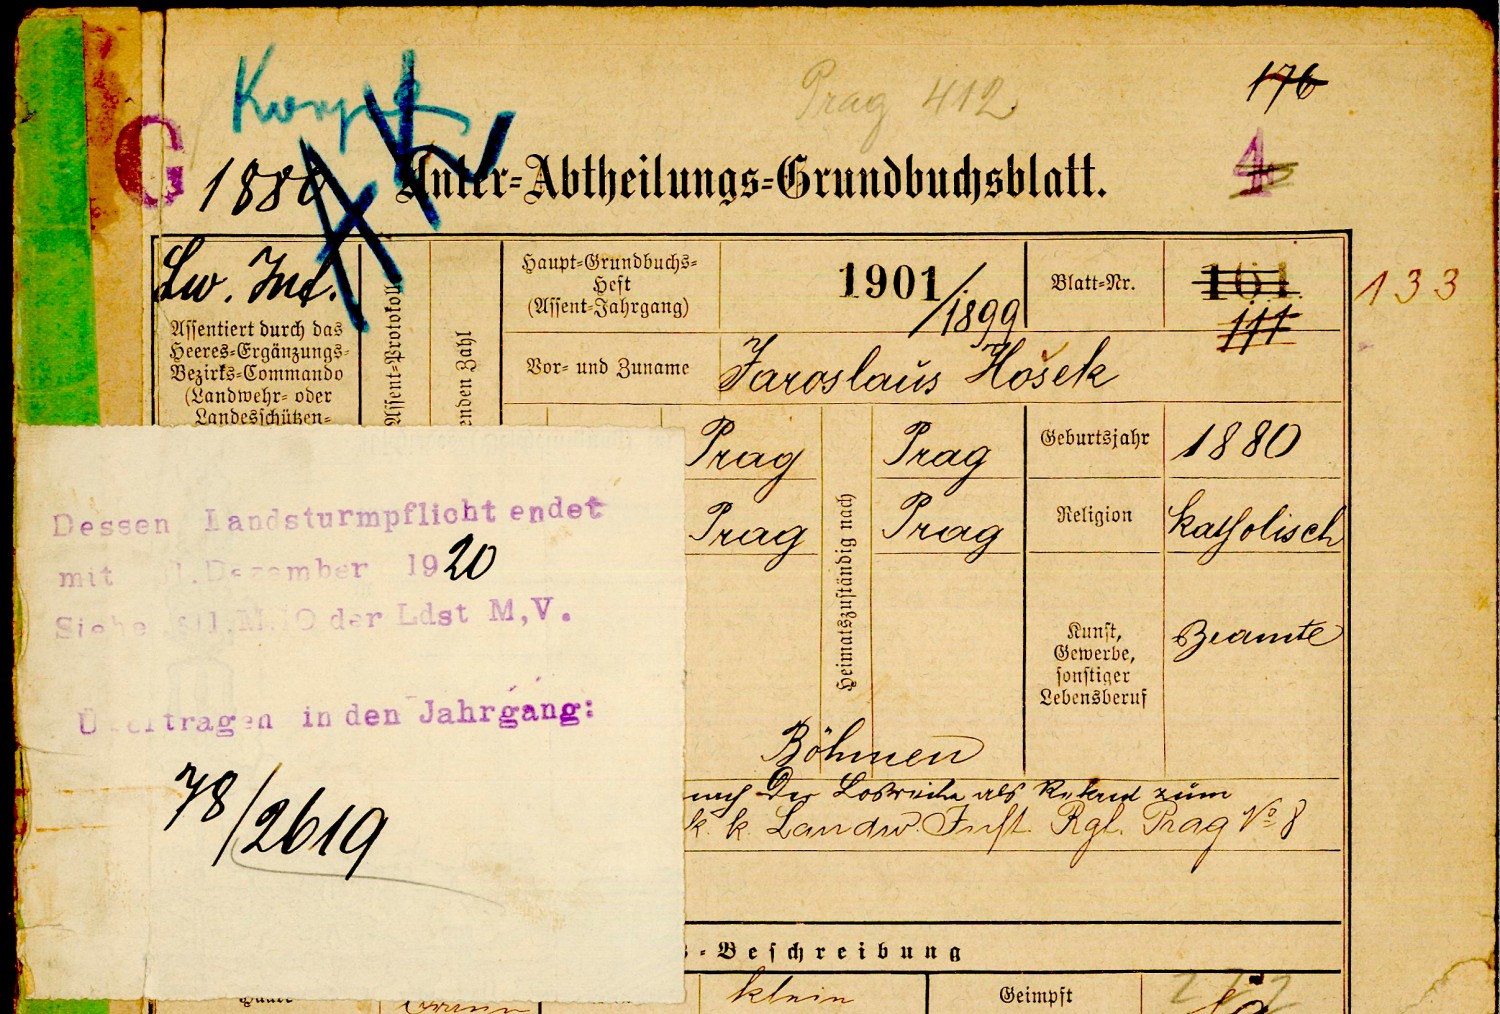 176
Prag 412
G
4
1880
Unter-Abtheilungs-Grundbuchsblatt.
Lw. Inf.
Assentiert durch das
Heeres-Ergänzungs-
Bezirks-Commando
(Landwehr- oder
Landesschützen-
Assent-Protokoll
enden Zahl
Haupt-Grundbuchs-
Heft
(Assent-Jahrgang)
1901/1899
Blatt-Nr.
161
111
133
Vor- und Zuname
Jaroslaus Hošek
Prag
Prag
Geburtsjahr
1880
Prag
Prag
Religion
katholisch
Heimatszuständig nach
Kunst,
Gewerbe,
sonstiger
Lebensberuf
Beamte
Böhmen
nach der Losreihe als Rekrut zum
k. k. Landw. Inft. Rgt. Prag No 8
Dessen Landsturmpflicht endet
mit 31.Dezember 1920
Siehe der Ldst M,V.
Übertragen in den Jahrgang:
78/2619
-Beschreibung
klein
Geimpft
ja